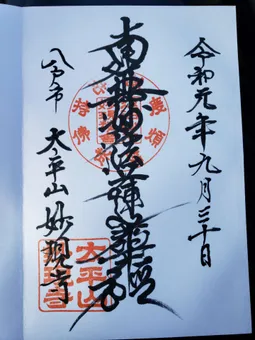 令和元年九月三十日
南無妙法蓮華經
八戸市 太平山 妙現寺
太平山
妙現寺